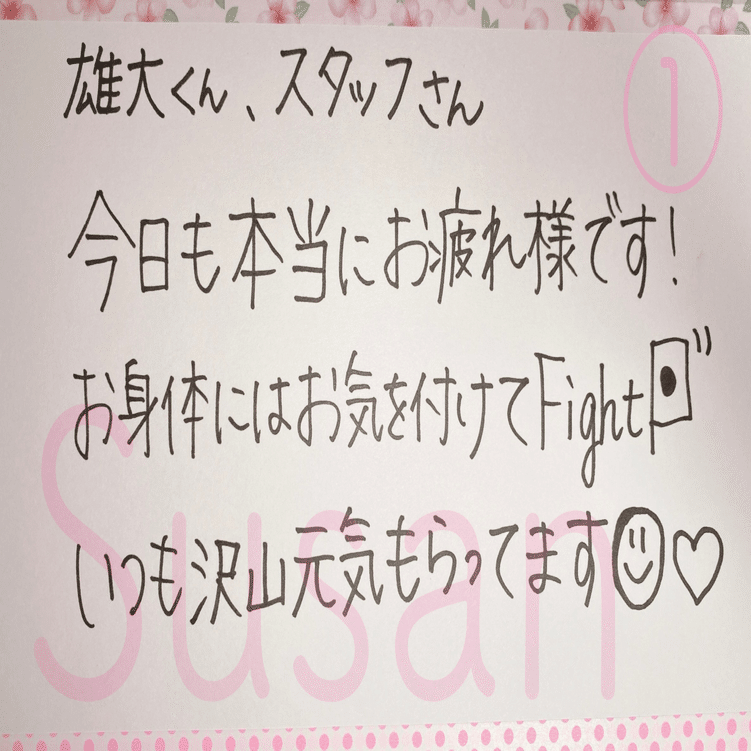 ①
雄大くん、スタッフさん
今日も本当にお疲れ様です!
お身体にはお気を付けてFight
いつも沢山元気もらってます
Susan